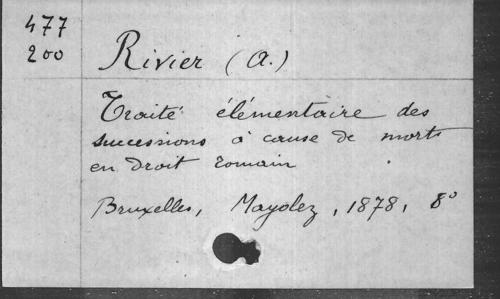 477
200
Rivier (A.)
Traité élémentaire des
successions à cause de morts
en droit romain
Bruxelles, Mayolez, 1878, 8°